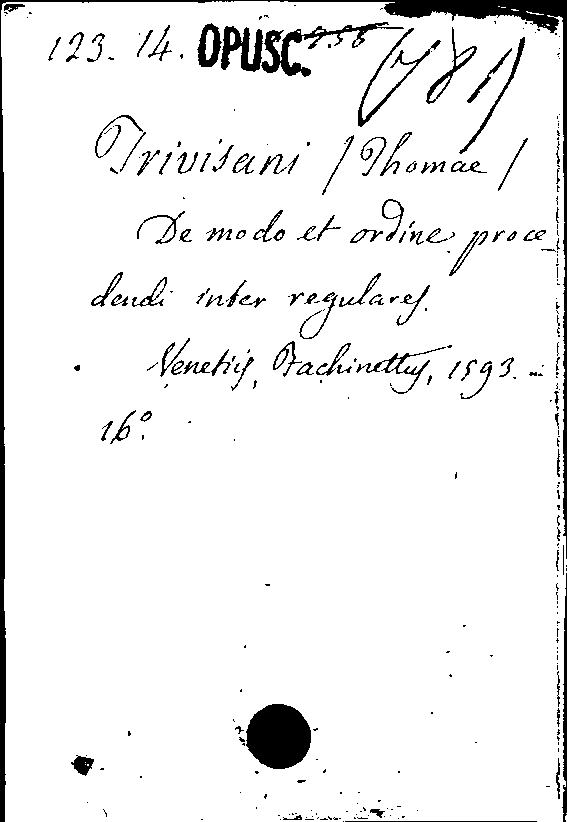 123. 14. OPUSC. (781)
Trivisani / Thomae /
De modo et ordine proce
dendi inter regulares.
Venetiis, Zachinettus, 1593. –
16º.